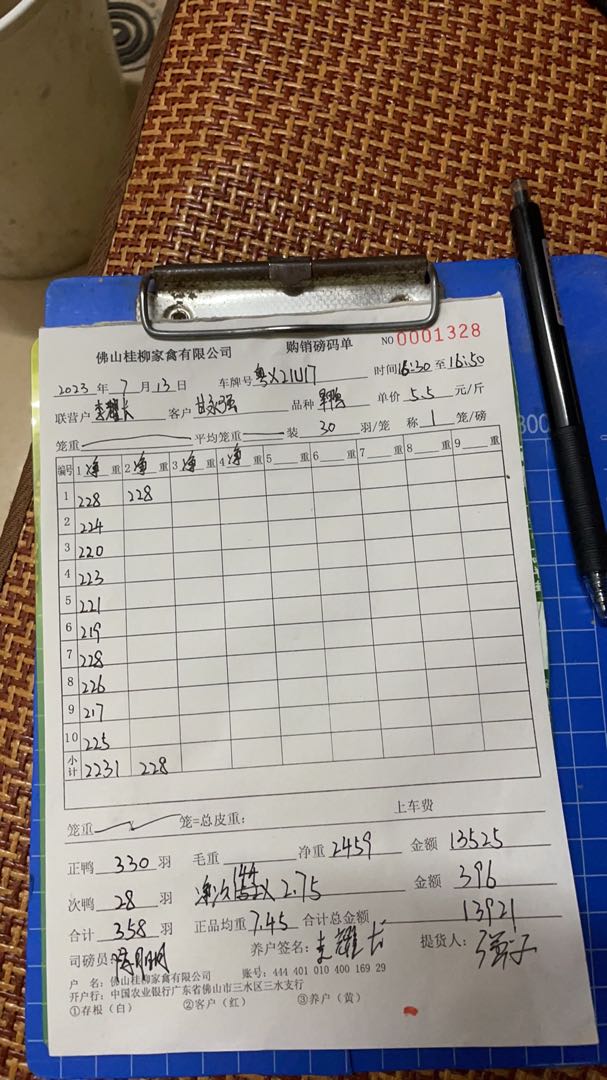 佛山桂柳家禽有限公司 购销磅码单 NO 0001328
2023 年 7 月 13 日 车牌号 粤X21U17 时间 16:30 至 16:50
联营户 李耀长 客户 甘永强 品种 单价 5.5 元/斤
笼重 平均笼重 装 30 羽/笼 称 1 笼/磅
编号 1 净 重 2 净 重 3 净 重 4 净 重 5 重 6 重 7 重 8 重 9 重
1 228 228
2 224
3 220
4 223
5 221
6 219
7 228
8 226
9 217
10 225
小计 2231 228
笼重 笼=总皮重： 上车费
正鸭 330 羽 毛重 净重 2459 金额 13525
144
次鸭 28 羽 净 X 2.75 金额 396
合计 358 羽 正品均重 7.45 合计总金额 13921
司磅员 养户签名： 李耀长 提货人：
户 名：佛山桂柳家禽有限公司 账号：444 401 010 400 169 29
开户行：中国农业银行广东省佛山市三水区三水支行
①存根（白） ②客户（红） ③养户（黄）